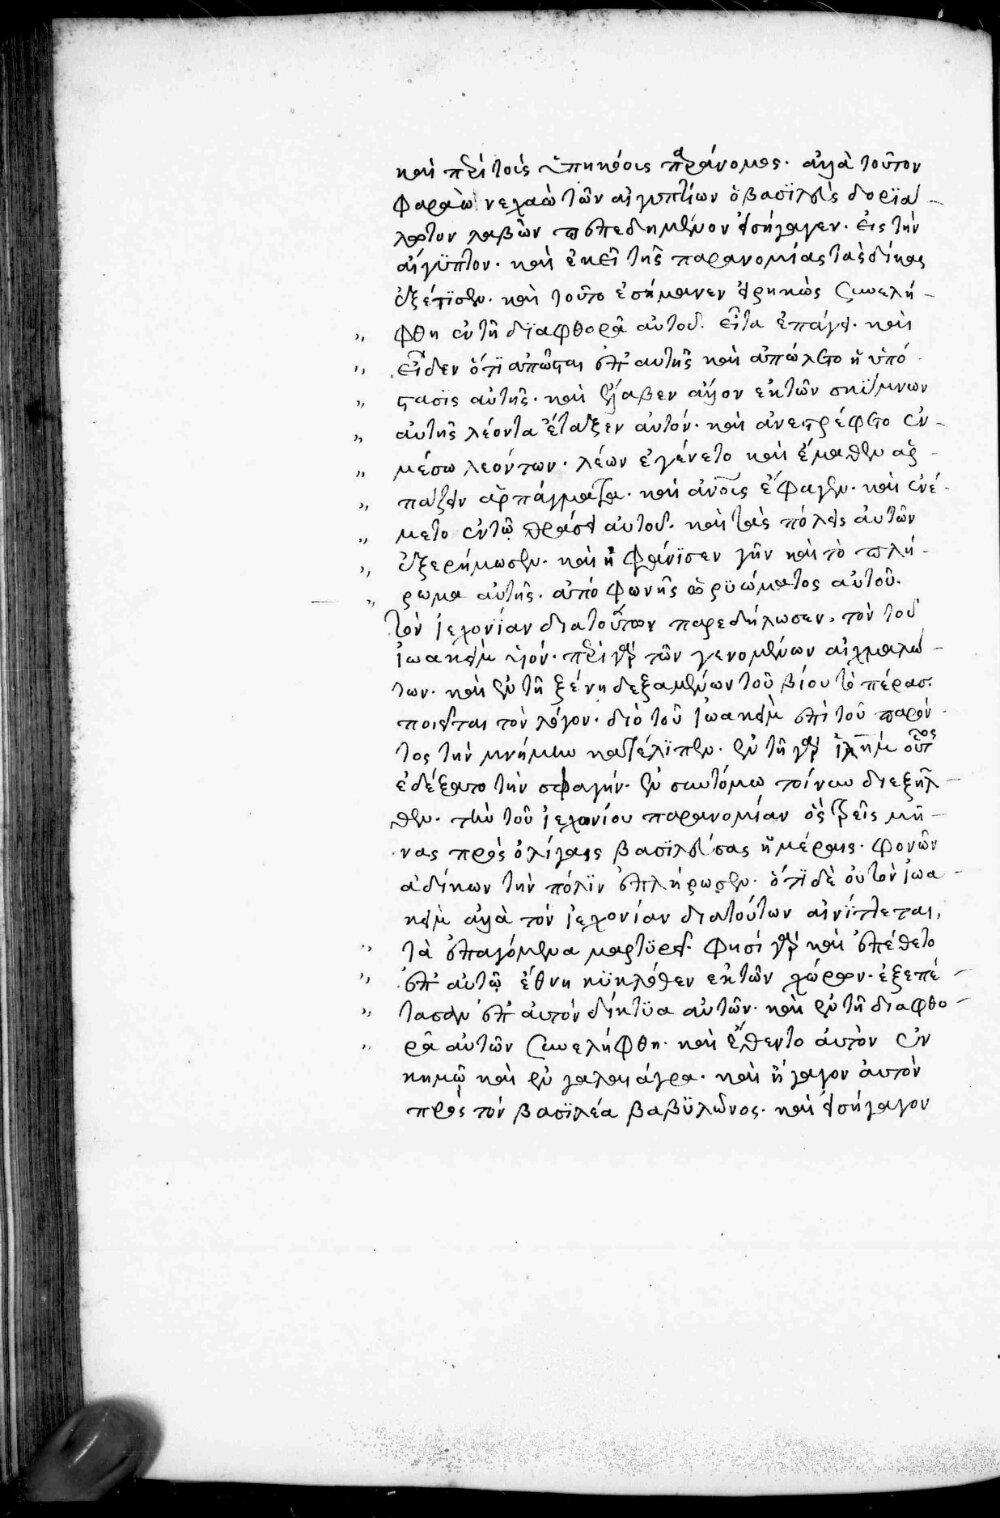 καὶ περὶ τοὺς ὑπηκόους παράνομος. ἀλλὰ τοῦτον
Φαραὼ νεχαὼ τῶν αἰγυπτίων ὁ βασιλεὺς δορϊά
λωτον λαβὼν πεπεδημένον εἰσήγαγεν. εἰς τὴν
αἴγϋπτον. καὶ ἐκεῖ τῆς παρανομίας τὰς δίκας
ἐξέτϊσεν. καὶ τοῦτο ἐσήμανεν εἰρηκὼς συνελή-
φθη ἐν τῆ δϊαφθορᾶ αὐτοῦ. εἶτα ἐπάγει. καὶ
εἶδεν ὅτϊ ἀπῶσται ἀπ' αὐτῆς καὶ ἀπώλετο ἡ ὑπό
στασϊς αὐτῆς. καὶ ἔλαβεν ἄλλον ἐκ τῶν σκϋμνων
αὐτῆς λέοντα ἔταξεν αὐτόν. καὶ ἀνεστρέφετο ἐν
μέσω λεόντων. λέων ἐγένετο καὶ ἔμαθεν ἁρ-
πάζειν ἁρπάγματα. καὶ ἀνους ἔφαγεν. καὶ ἐνέ-
μετο ἐν τῶ θράσει αὐτοῦ. καὶ τὰς πόλεις αὐτῶν
ἐξερήμωσεν. καὶ ἠφάνϊσεν γῆν καὶ τὸ πλή-
ρωμα αὐτῆς. ἀπὸ φωνῆς ὠρϋώματος αὐτοῦ.
τὸν ἰεχονΐαν διὰ τούτων παρεδήλωσεν, τὸν τοῦ
ἰωακεὶμ υἱόν. περὶ γὰρ τῶν γενομένων αἰχμαλώ-
των. καὶ ἐν τῆ ξένη δεξαμένων τοῦ βίου τὸ πέρας
ποιεῖται τὸν λόγον. διὸ τοῦ ἰωακεὶμ ἐπὶ τοῦ παρόν
τος τὴν μνήμην κατέλϊπεν. ἐν τῆ γὰρ ἰλημ οὗτος
ἐδέξατο τὴν σφαγήν. ἐν συντόμω τοίνυν διεξῆλ-
θεν. τὴν τοῦ ἰεχονίου παρανομίαν ὃς τρεῖς μῆ-
νας πρὸς ὀλίγαις βασϊλεύσας ἡμέραις. φονῶν
ἀδίκων τὴν πόλϊν ἐπλήρωσεν. ὅτϊ δὲ οὐ τὸν ἰωα-
κεὶμ ἀλλὰ τὸν ἰεχονίαν διὰ τούτων αἰνίττεται,
τὰ ἐπαγόμενα μαρτϋρεῖ. φησὶ γὰρ καὶ ἐπέθετο
ἐπ' αὐτῶ ἔθνη κϋκλόθεν ἐκ τῶν χώρων. ἐξεπέ-
τασαν ἐπ' αὐτὸν δίκτϋα αὐτῶν. καὶ ἐν τῆ διαφθο-
ρᾶ αὐτῶν συνελήφθη. καὶ ἔθεντο αὐτὸν ἐν
κημῶ καὶ ἐν γαλαιάγρα. καὶ ἤγαγον αὐτὸν
πρὸς τὸν βασϊλέα βαβϋλῶνος. καὶ εἰσήγαγον